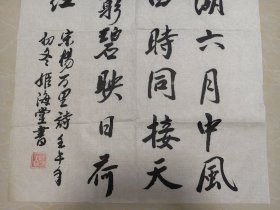 湖六月中風
四時同接天
窮碧映日荷
紅
宋楊万里詩壬午年
初冬姬海堂書